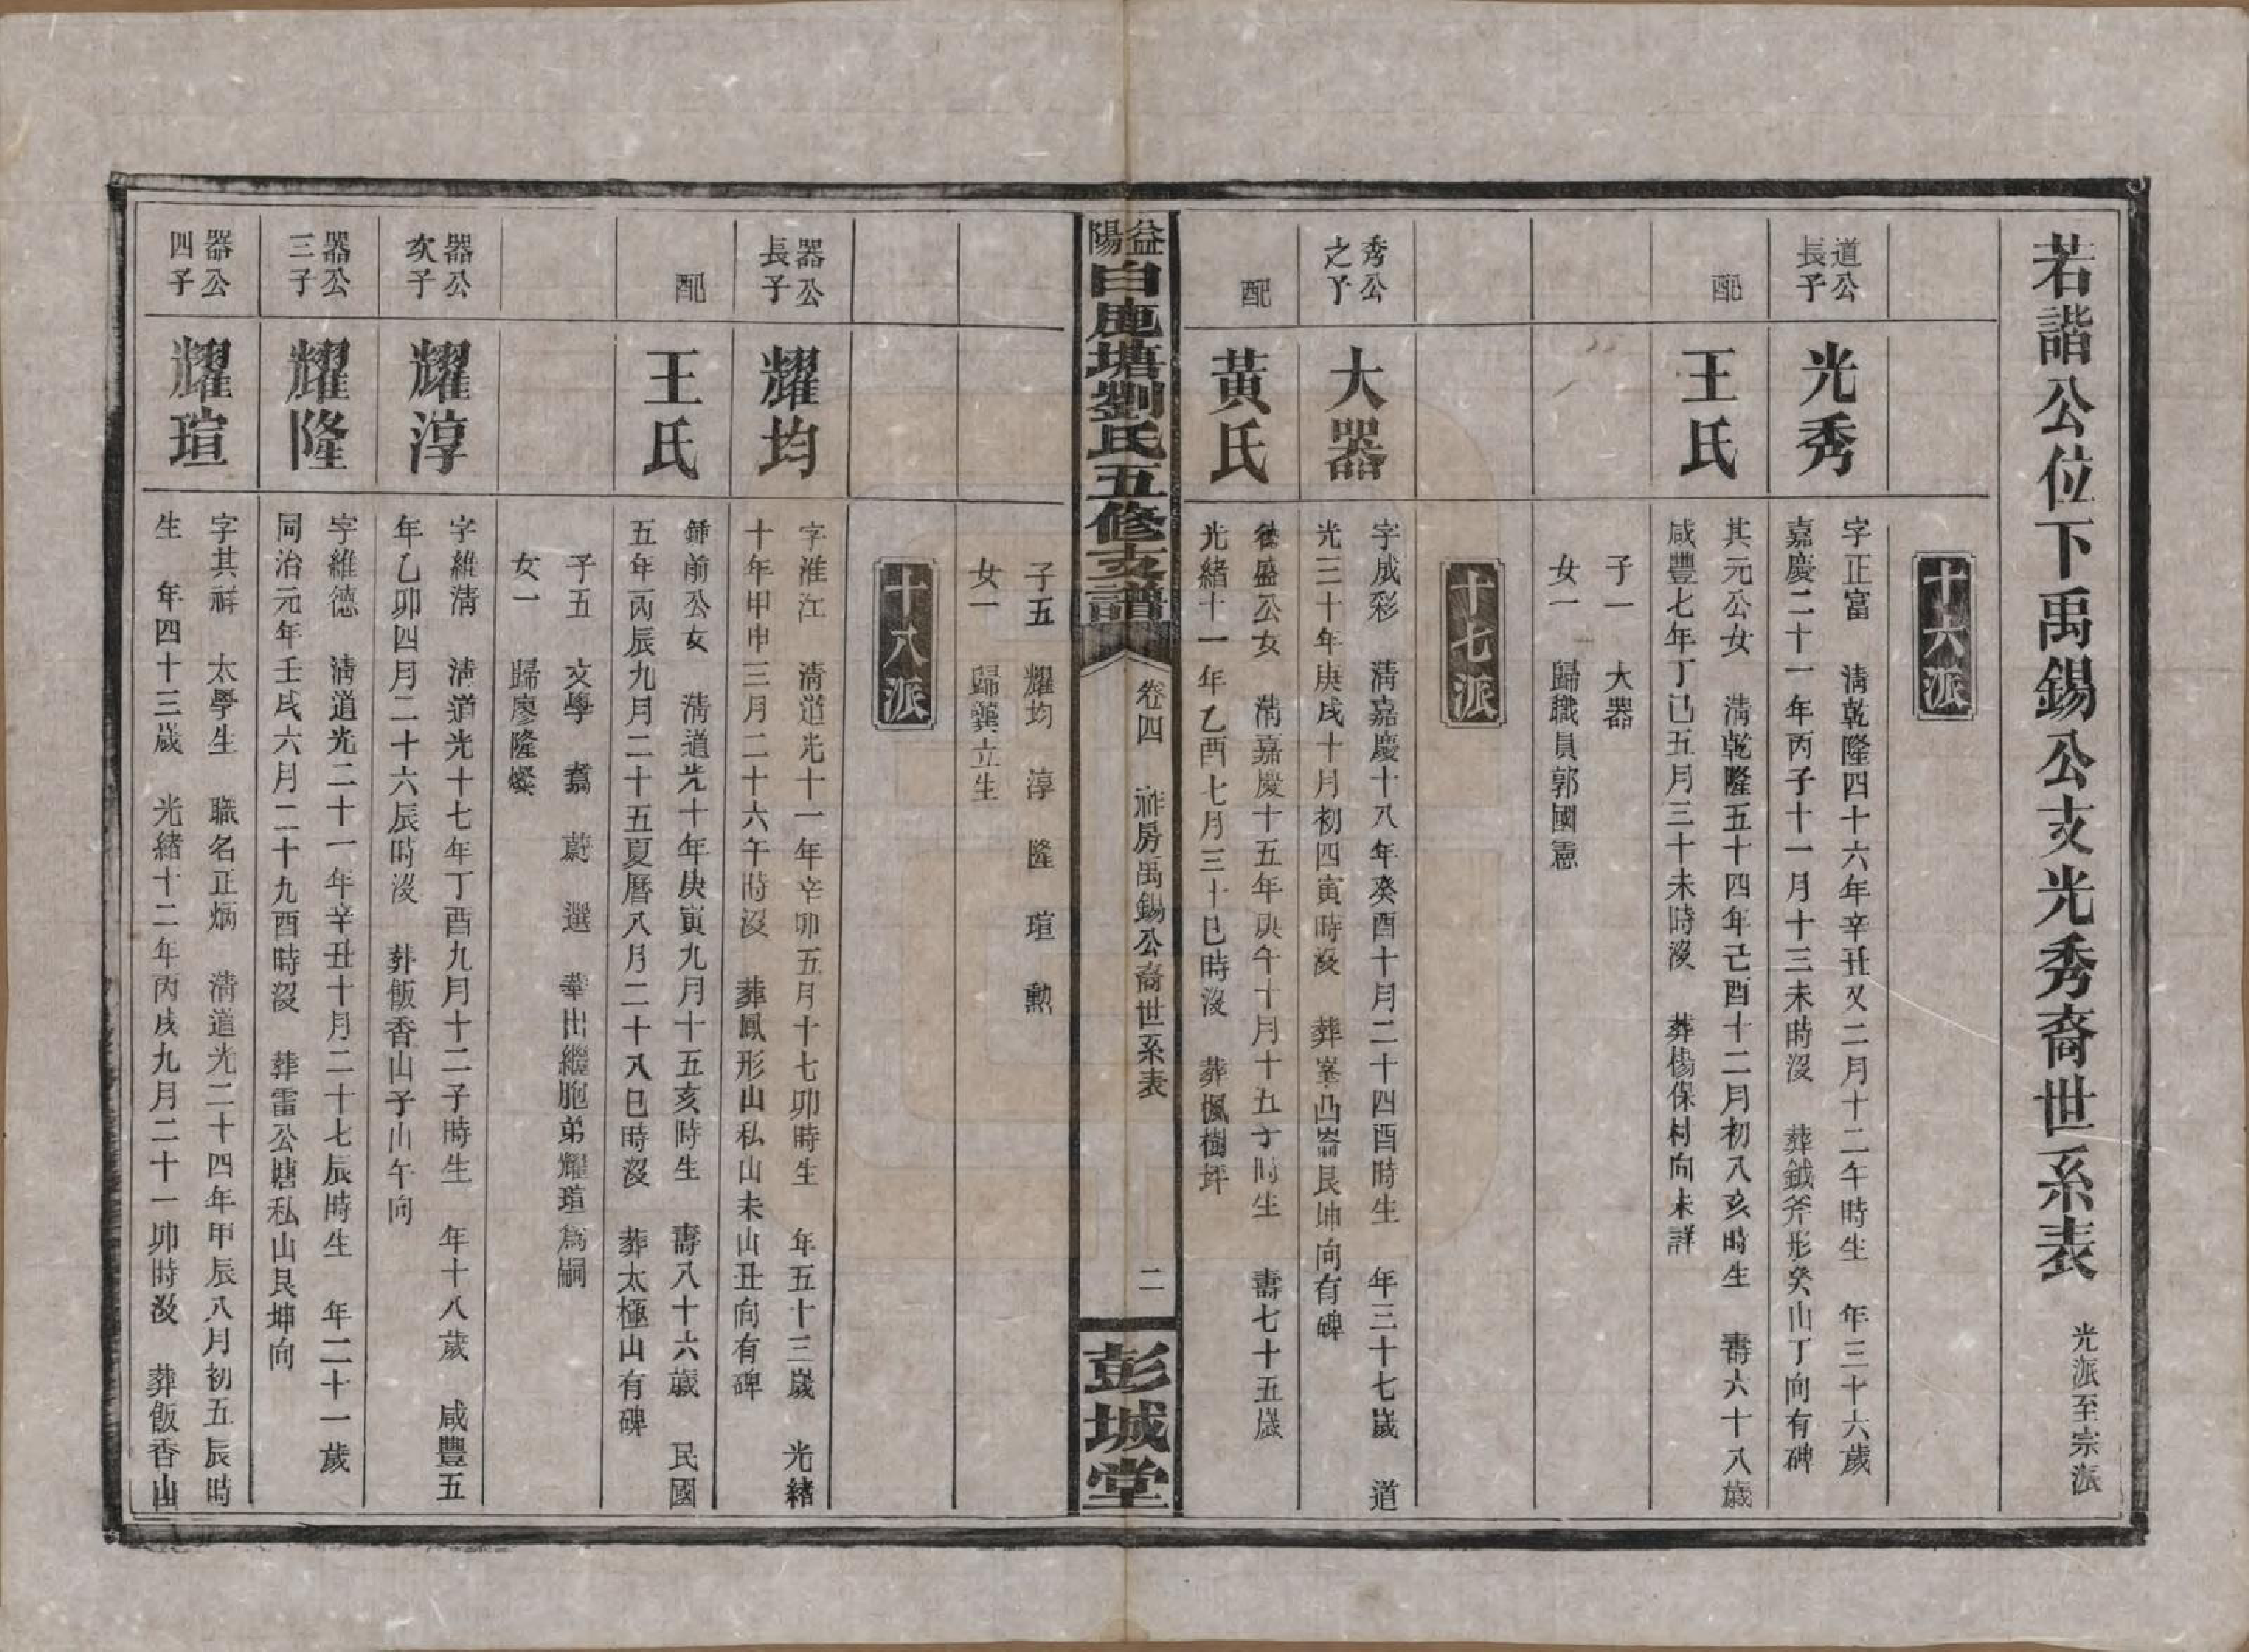 若諧公位下禹錫公支光秀裔世系表 光派至宗派
十六派
道公長子
光秀
字正富 清乾隆四十六年辛丑又二月十二午時生 年三十六歲
嘉慶二十一年丙子十一月十三未時沒 葬鉞斧形癸山丁向有碑
配
王氏
其元公女 清乾隆五十四年己酉十二月初八亥時生 壽六十八歲
咸豐七年丁巳五月三十未時沒 葬楊保村向未詳
子一 大器
女一 歸職員郭國憲
十七派
秀公之子
大器
字成彩 清嘉慶十八年癸酉十月二十四酉時生 年三十七歲 道
光三十年庚戌十月初四寅時沒 葬峯凸崙艮坤向有碑
配
黃氏
德盛公女 清嘉慶十五年庚午十月十五子時生 壽七十五歲
光緒十一年乙酉七月三十巳時沒 葬楓樹坪
益陽白鹿塘劉氏五修支譜 卷四 祚房禹錫公裔世系表 二 彭城堂
子五 耀均 淳 隆 瑄 勲
女一 歸龔立生
十八派
器公長子
耀均
字淮江 清道光十一年辛卯五月十七卯時生 年五十三歲 光緒
十年甲申三月二十六午時沒 葬鳳形山私山未山丑向有碑
配
王氏
鍾前公女 清道光十年庚寅九月十五亥時生 壽八十六歲 民國
五年丙辰九月二十五夏曆八月二十八巳時沒 葬太極山有碑
子五 文學 翥 蔚 選 華出繼胞弟耀瑄為嗣
女一 歸廖隆燦
器公次子
耀淳
字維清 清道光十七年丁酉九月十二子時生 年十八歲 咸豐五
年乙卯四月二十六辰時沒 葬飯香山子山午向
器公三子
耀隆
字維德 清道光二十一年辛丑十月二十七辰時生 年二十一歲
同治元年壬戌六月二十九酉時沒 葬雷公塘私山艮坤向
器公四子
耀瑄
字其祥 太學生 職名正炳 清道光二十四年甲辰八月初五辰時
生 年四十三歲 光緒十二年丙戌九月二十一卯時沒 葬飯香山